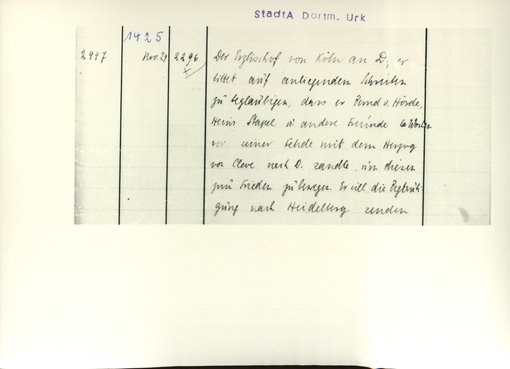 StadtA Dortm. Urk
1425
2447 Nov. 29 2296 Der Erzbischof von Köln an D., er
bittet auf anliegendem Schreiben
zu beglaubigen, dass er Bernd v. Hörde,
Heinr. Stapel u. andere Freunde 6 Wochen
vor seiner Fehde mit dem Herzog
von Cleve nach D. sandte, um diesen
zum Frieden zu bewegen. Er will die Beglaubi-
gung nach Heidelberg senden